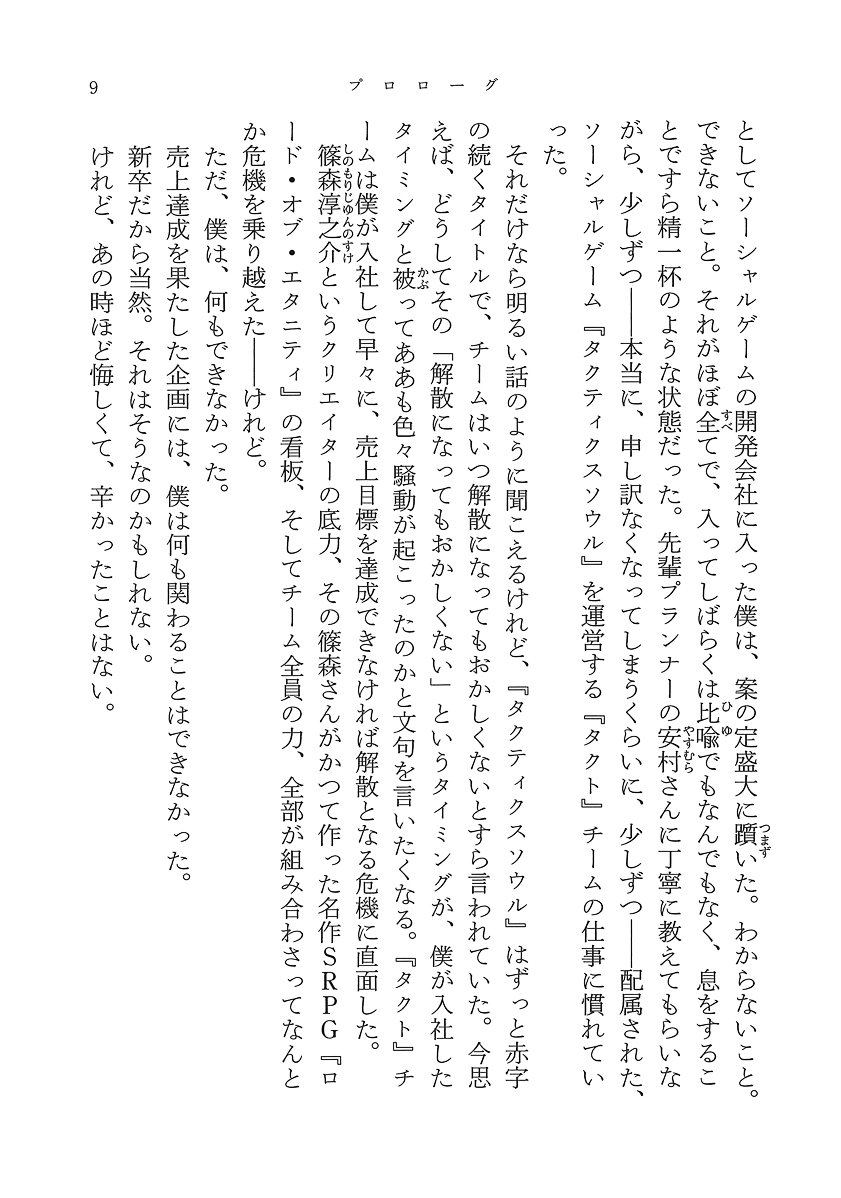 9
プロローグ
としてソーシャルゲームの開発会社に入った僕は、案の定盛大に躓いた。わからないこと。
できないこと。それがほぼ全てで、入ってしばらくは比喩でもなんでもなく、息をするこ
とですら精一杯のような状態だった。先輩プランナーの安村さんに丁寧に教えてもらいな
がら、少しずつ――本当に、申し訳なくなってしまうくらいに、少しずつ――配属された、
ソーシャルゲーム『タクティクスソウル』を運営する『タクト』チームの仕事に慣れてい
った。
それだけなら明るい話のように聞こえるけれど、『タクティクスソウル』はずっと赤字
の続くタイトルで、チームはいつ解散になってもおかしくないとすら言われていた。今思
えば、どうしてその「解散になってもおかしくない」というタイミングが、僕が入社した
タイミングと被ってああも色々騒動が起こったのかと文句を言いたくなる。『タクト』チ
ームは僕が入社して早々に、売上目標を達成できなければ解散となる危機に直面した。
篠森淳之介というクリエイターの底力、その篠森さんがかつて作った名作ＳＲＰＧ『ロ
ード・オブ・エタニティ』の看板、そしてチーム全員の力、全部が組み合わさってなんと
か危機を乗り越えた――けれど。
ただ、僕は、何もできなかった。
売上達成を果たした企画には、僕は何も関わることはできなかった。
新卒だから当然。それはそうなのかもしれない。
けれど、あの時ほど悔しくて、辛かったことはない。